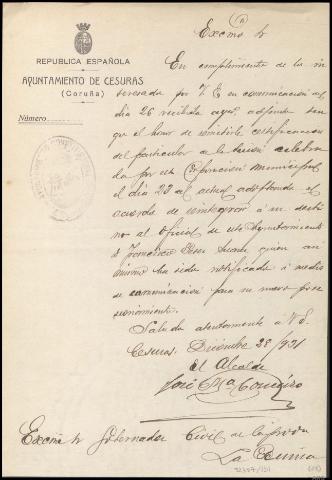 REPUBLICA ESPAÑOLA
AYUNTAMIENTO DE CESURAS
(Coruña)
Número
Excmo Sr
En cumplimiento de lo in
teresado por V. E. en comunicación del
dia 26 recibida ayer, adjunto ten
go el honor de remitirle certificacion
del particular de la sesión celebra
da por esta Corporación municipal
el dia 23 del actual adoptando el
acuerdo de reintegrar á su desti
no al oficial de este Ayuntamiento
D Francisco quien
ha sido notificado á medio
de comunicación para su nuevo pose
sionamiento.
Saluda atentamente á V E.
Cesuras Diciembre 28/931
El Alcalde
José
Excmo Sr Gobernador Civil de la
La Coruña